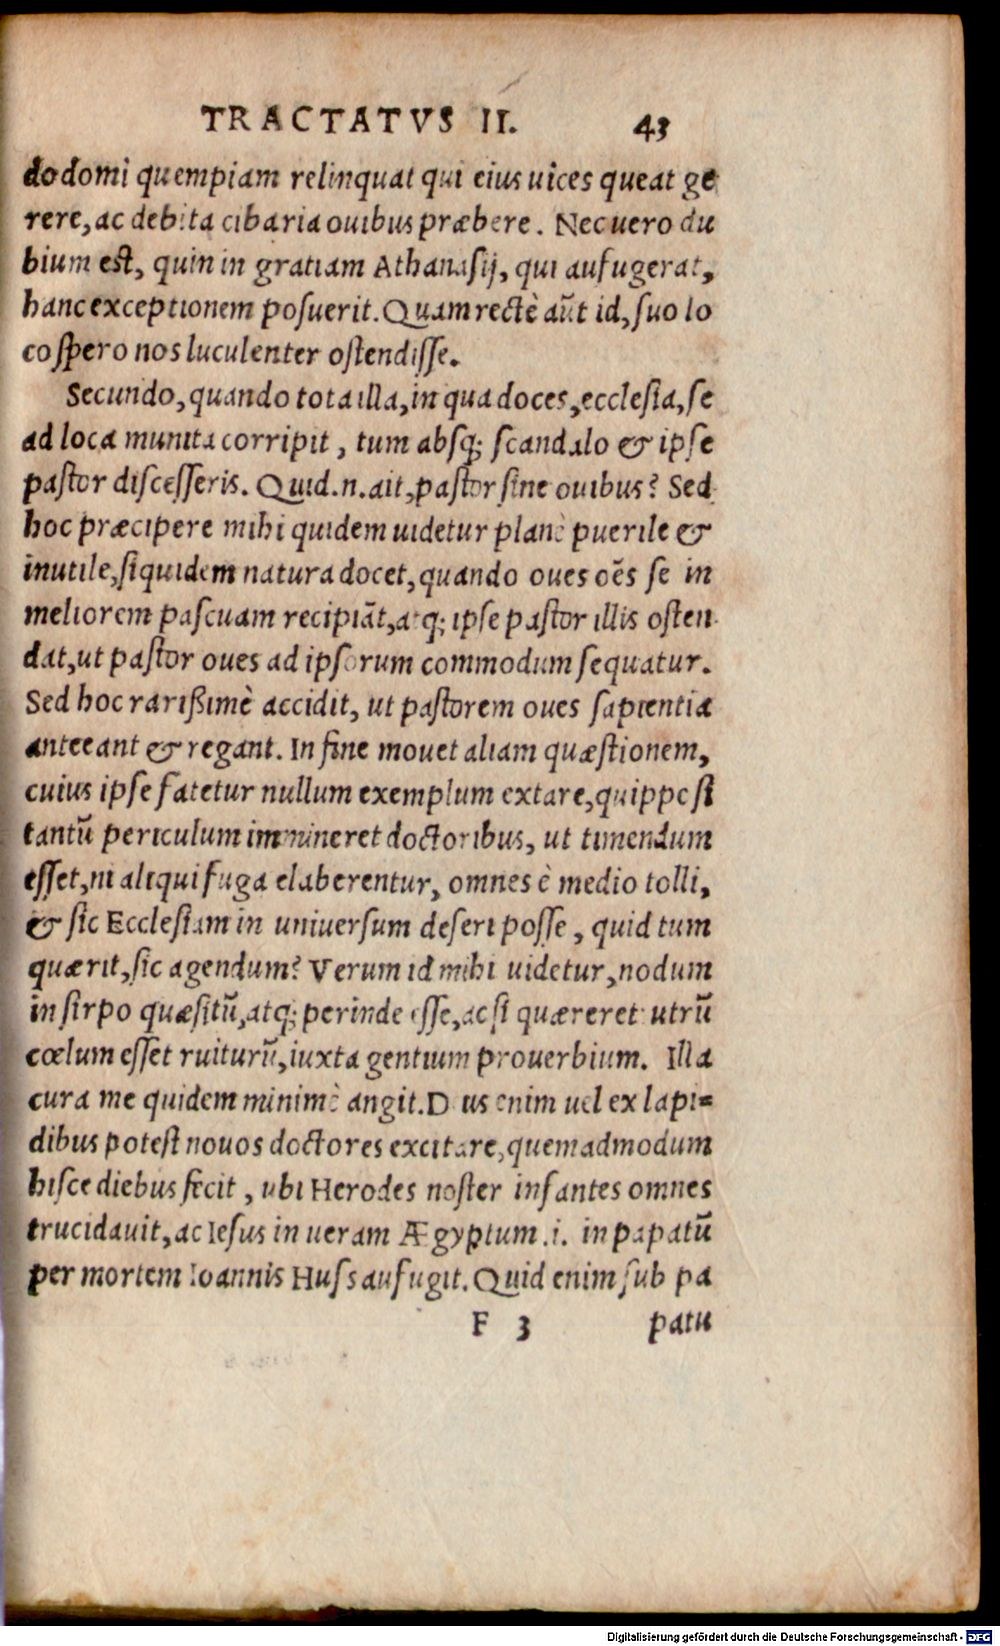 TRACTATVS II. 43
do domi quempiam relinquat qui eius uices queat ge
rere, ac debita cibaria ouibus præbere. Nec uero du
bium est, quin in gratiam Athanasij, qui aufugerat,
hanc exceptionem posuerit. Quam rectè aūt id, suo lo
co spero nos luculenter ostendisse.
Secundo, quando tota illa, in qua doces, ecclesia, se
ad loca munita corripit, tum absq; scandalo & ipse
pastor discesseris. Quid .n. ait, pastor sine ouibus? Sed
hoc præcipere mihi quidem uidetur planè puerile &
inutile, siquidem natura docet, quando oues oēs se in
meliorem pascuam recipiāt, atq; ipse pastor illis osten
dat, ut pastor oues ad ipsorum commodum sequatur.
Sed hoc rarißimè accidit, ut pastorem oues sapientia
anteeant & regant. In fine mouet aliam quæstionem,
cuius ipse fatetur nullum exemplum extare, quippe si
tantū periculum immineret doctoribus, ut timendum
esset, ni aliqui fuga elaberentur, omnes è medio tolli,
& sic Ecclesiam in uniuersum deseri posse, quid tum
quærit, sic agendum? Verum id mihi uidetur, nodum
in sirpo quæsitū, atq; perinde esse, ac si quæreret utrū
cœlum esset ruiturū, iuxta gentium prouerbium. Illa
cura me quidem minimè angit. D us enim uel ex lapi=
dibus potest nouos doctores excitare, quemadmodum
hisce diebus fecit, ubi Herodes noster infantes omnes
trucidauit, ac Iesus in ueram Ægyptum .i. in papatū
per mortem Ioannis Huss aufugit. Quid enim sub pa
F 3 patu
Digitalisierung gefördert durch die Deutsche Forschungsgemeinschaft - DFG